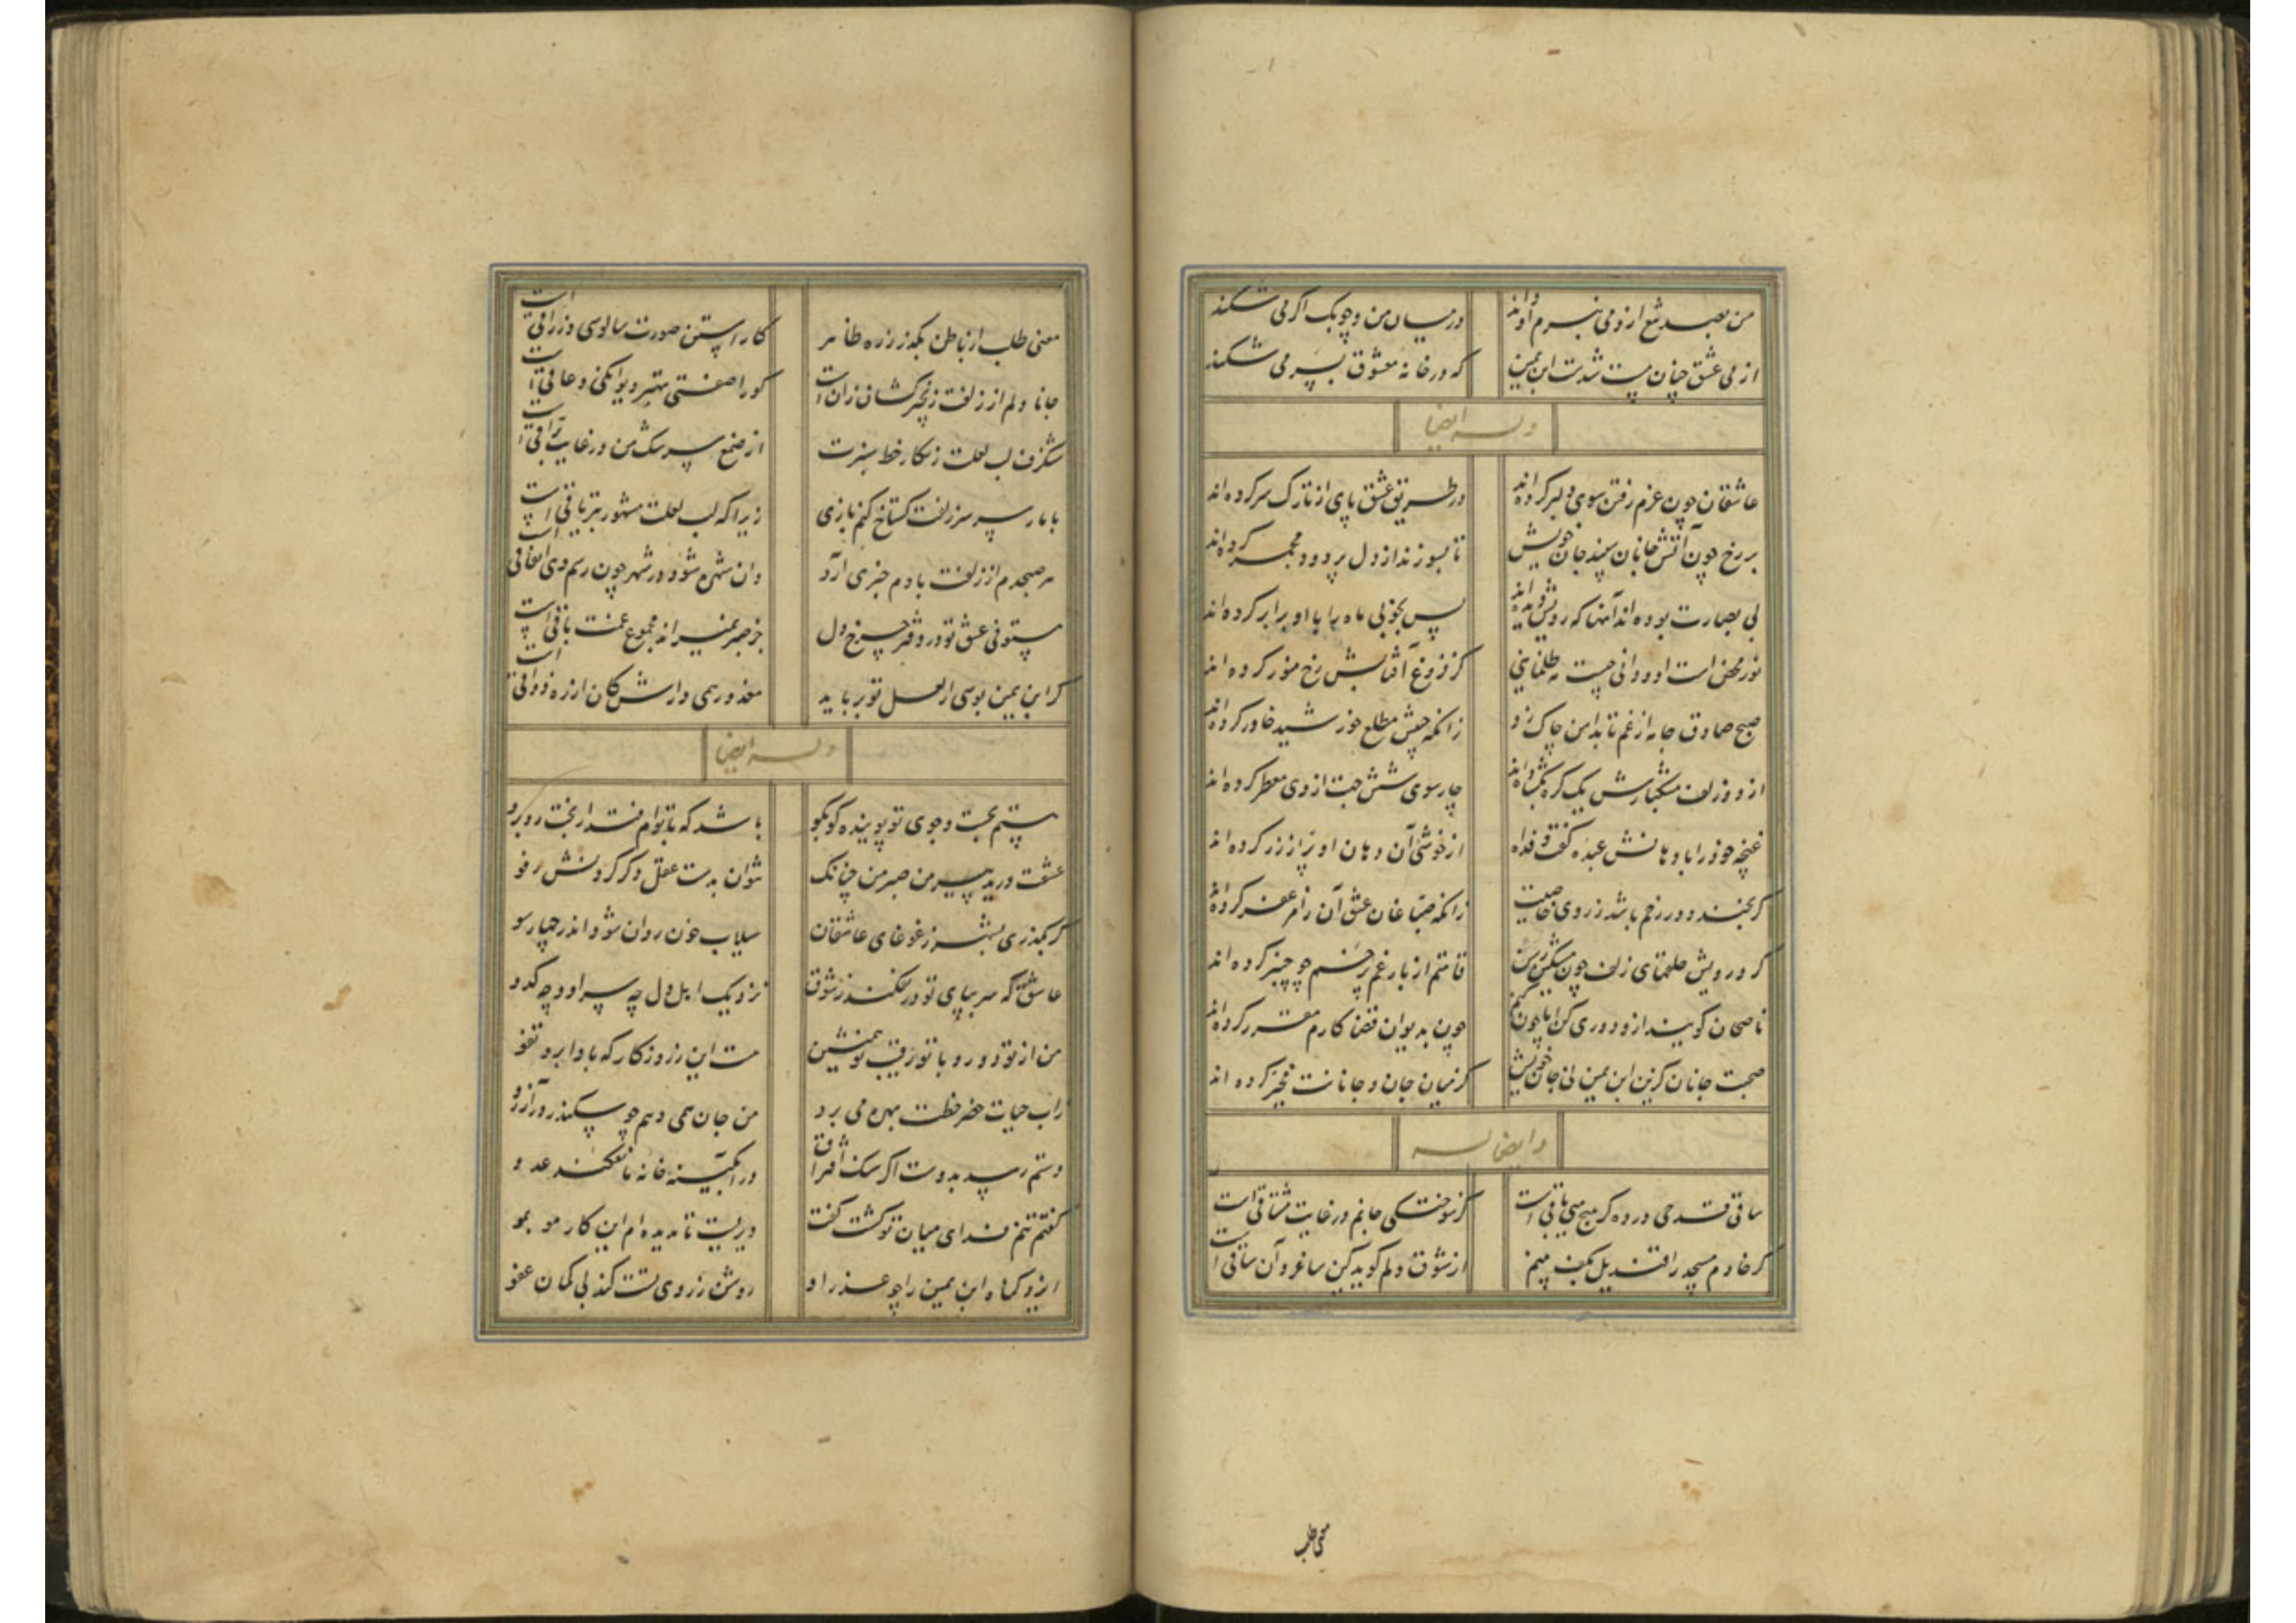 من بصد شمع ازو می نبرم
در میان من و چوبک اگر می شکند
از می عشق چنان مست شدست ابن یمین
که در خانه معشوق بسر می شکند
وله ایضا
عاشقان چون عزم رفتن سوی دلبر کرده‌اند
در طریق عشق پای از تارک سر کرده‌اند
بر رخ چون آتش جانان سپند جان خویش
تا بسوزند از دل پر دود مجمر کرده‌اند
بی بصارت بوده اند آنها که رویش دیده اند
پس بخوبی ماه را با او برابر کرده‌اند
نور محض است او و دانی چیست مه ظلمانیی
کز فروغ آفتابش رخ منور کرده اند
صبح صادق جامه از غم تا بدامن چاک زد
زانکه جیبش مطلع خورشید خاور کرده‌اند
از دو زلف مشکبارش یک گره
چار سوی شش جهت از وی معطر کرده اند
غنچه خود را با دهانش
از خوشی آن دهان او پر از زر کرده اند
گر بخندد در رخم باشد ز روی خاصیت
زانکه صباغان عشق آن را مزعفر کرده‌اند
گرد رویش حلقهای زلف چون مشکین رسن
قامتم از بار غم پر خم چو چنبر کرده اند
ناصحان گویند ازو دوری کن اما چون کنم
چون بدیوان قضا کارم مقرر کرده‌اند
صحبت جانان گزین ابن یمین نی جان خویش
کز میان جان و جانانت مخیر کرده اند
وایضا له
ساقی قدحی در ده گر هیچ میی باقی است
کز سوختگی جانم در غایت مشتاقی است
گر خادم مسجد را قندیل بکف بینم
از شوق دلم گوید کین ساغر و آن ساقی است
معنی طلب
معنی طلب از باطن بگذر ز ره ظاهر
کاراستن صورت سالوسی و زراقی است
جانا دلم از زلفت زنجیر کشان زان است
کو را صفتی بهتر دیوانگی و عاقی است
شنگرف لب لعلت زنگار خط سبزت
از صنع
با مار سر زلفت گستاخ کنم بازی
زیرا که لب لعلت مشهور بتریاقی است
هر صبحدم از زلفت بادم خبری آرد
وان شهره شود در شهر چون رسم دی
مستوفی عشق تو در دفتر چرخ دل
جز صبر نمیراند مجموع غمت باقی است
گر ابن یمین بوسی از لعل تو برباید
معذور همی دارش کان از ره ذواقی است
وله ایضا
هستم بجست و جوی تو پوینده کو بکو
باشد که با توام فتد از بخت رو برو
عشقت درید پیرهن صبر من چنانک
نتوان بدست عقل دگر کردنش رفو
گر بگذری بشهر ز غوغای عاشقان
سیلاب خون روان شود اندر چهار سو
عاشق که سر بپای تو در نفکند ز شوق
نزدیک اهل دل چه سر او و چه کدو
من از تو دور و با تو رقیب تو همنشین
هست این ز روزگار که بادا برو تفو
زاب حیات خضر خطت بهره می برد
من جان همی دهم چو سکندر در آرزو
دستم رسد بدوست اگر سنگ افتراق
در آبگینه خانه ما نفکند عدو
گفتم تنم فدای میان تو گشت گفت
دیریست تا بدیده ام این کار مو بمو
ایزد گناه ابن یمین را چو عذر او
روشن ز روی تست کند بی گمان عفو